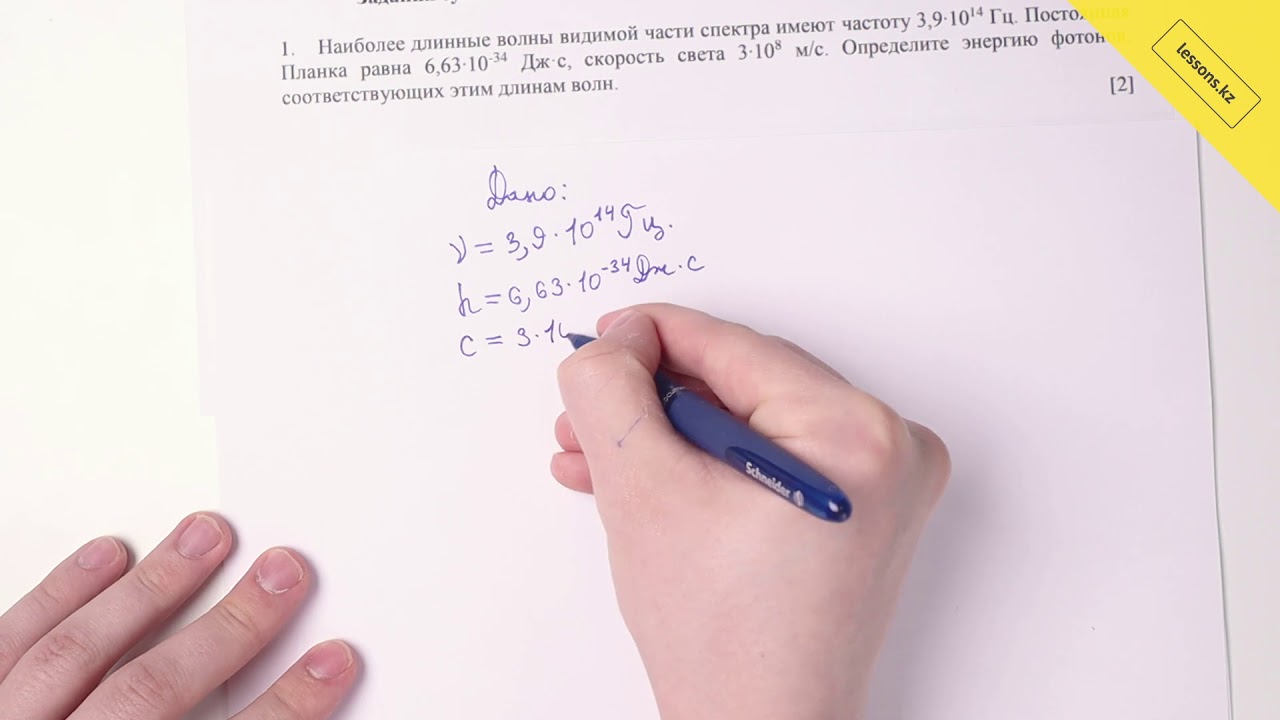 1. Наиболее длинные волны видимой части спектра имеют частоту 3,9·10¹⁴ Гц. Постоянная
Планка равна 6,63·10⁻³⁴ Дж·с, скорость света 3·10⁸ м/с. Определите энергию фотонов,
соответствующих этим длинам волн.
[2]
lessons.kz
Дано:
ν = 3,9·10¹⁴ Гц.
h = 6,63·10⁻³⁴ Дж·с
c = 3·10
Schneider